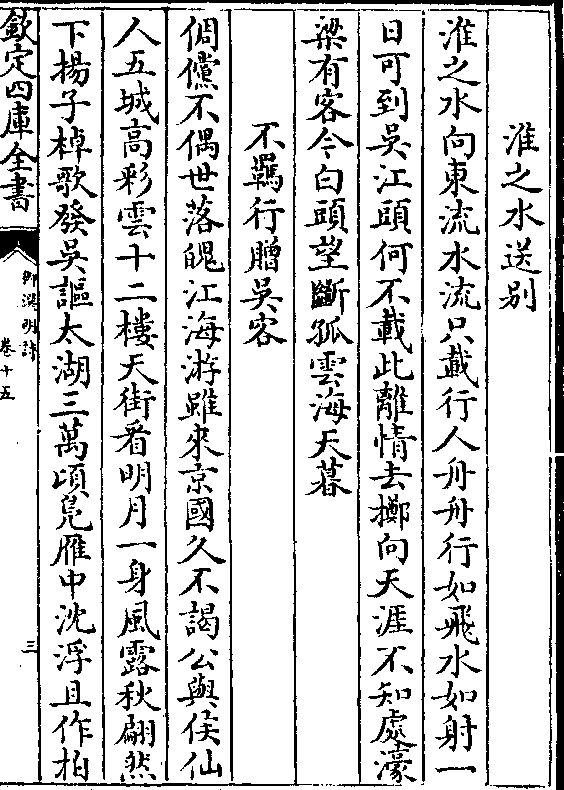 淮之水送别
淮之水向東流水流只載行人舟舟行如飛水如射一
日可到吳江頭何不載此離情去擲向天涯不知處濠
梁有客今白頭望斷孤雲海天暮
不羈行贈吳客
倜儻不偶世落魄江海游雖來京國久不謁公與侯仙
人五城高彩雲十二樓天街看明月一身風露秋翩然
下揚子棹歌發吳謳太湖三萬頃鳬雁中沈浮且作柏
欽定四庫全書
御選明詩
卷十五
三